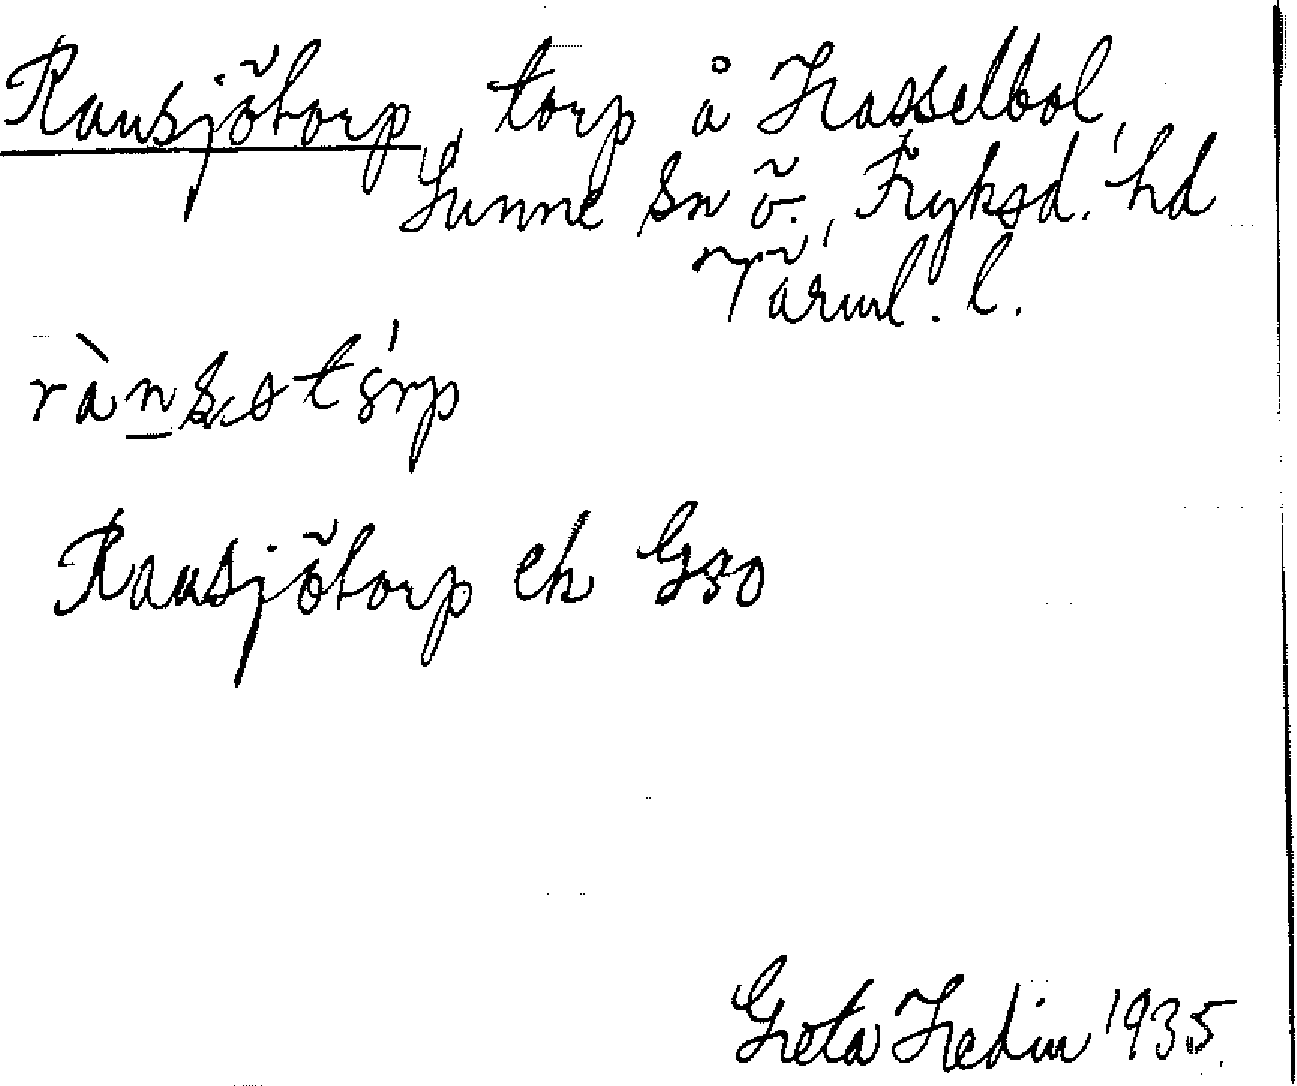 Ransjötorp, torp å Hasselbol,
Sunne sn ö. Fryksd. hd
Värml. l.
Ransjötorp ek G30
Greta Hedin 1935.